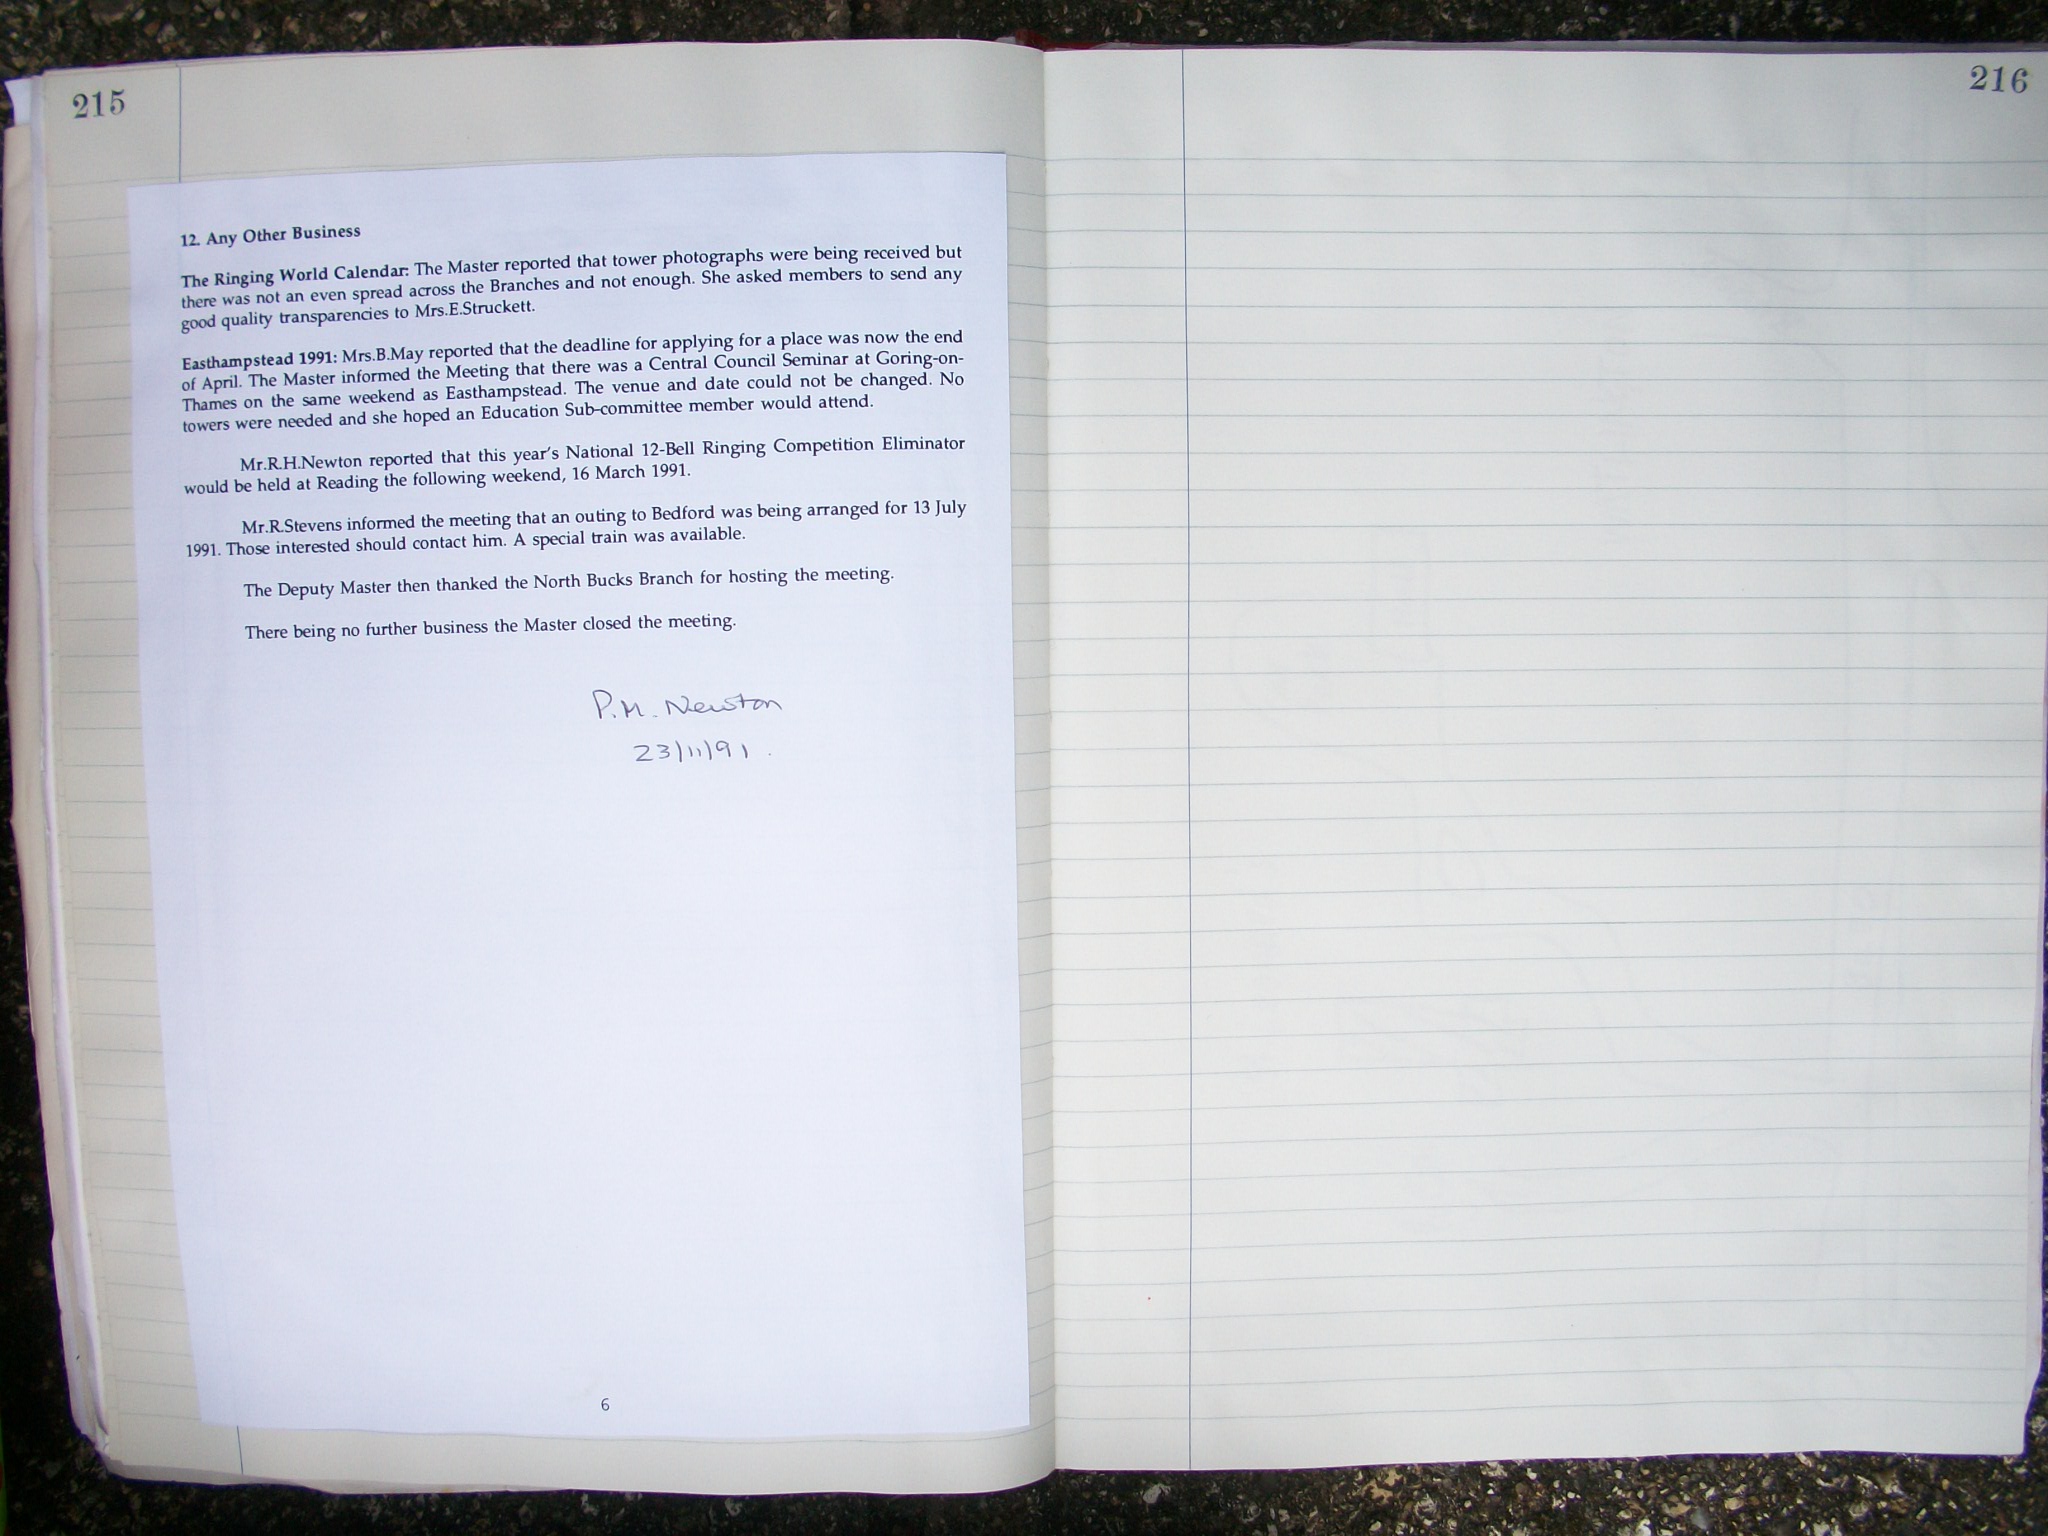 215
12. Any Other Business
The Ringing World Calendar: The Master reported that tower photographs were being received but
there was not an even spread across the Branches and not enough. She asked members to send any
good quality transparencies to Mrs.E.Struckett.
Easthampstead 1991: Mrs.B.May reported that the deadline for applying for a place was now the end
of April. The Master informed the Meeting that there was a Central Council Seminar at Goring-on-
Thames on the same weekend as Easthampstead. The venue and date could not be changed. No
towers were needed and she hoped an Education Sub-committee member would attend.
Mr.R.H.Newton reported that this year's National 12-Bell Ringing Competition Eliminator
would be held at Reading the following weekend, 16 March 1991.
Mr.R.Stevens informed the meeting that an outing to Bedford was being arranged for 13 July
1991. Those interested should contact him. A special train was available.
The Deputy Master then thanked the North Bucks Branch for hosting the meeting.
There being no further business the Master closed the meeting.
P.M. Newton
23/11/91.
6
216